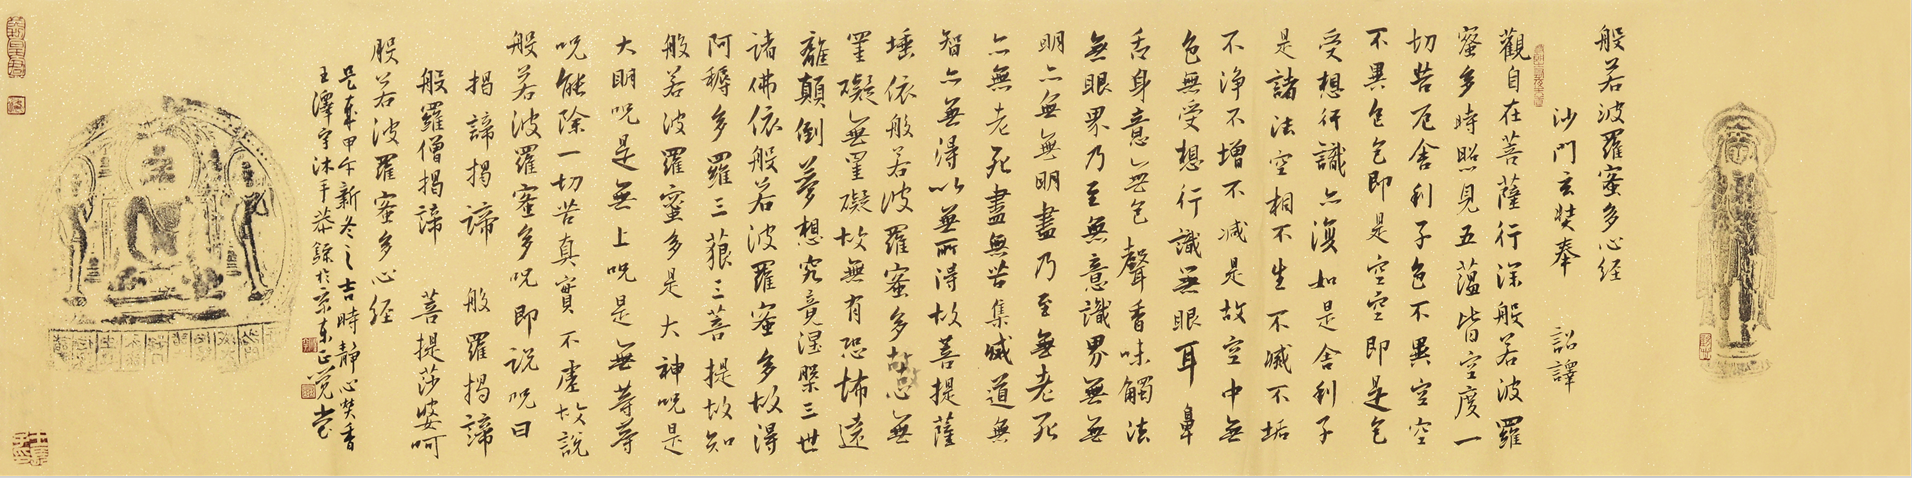 般若波羅蜜多心经
沙門玄奘奉 詔譯
觀自在菩薩行深般若波羅
蜜多時照見五蕴皆空度一
切苦厄舍利子色不異空空
不異色色即是空空即是色
受想行識亦復如是舍利子
是諸法空相不生不滅不垢
不淨不增不减是故空中無
色無受想行識無眼耳鼻
舌身意無色聲香味觸法
無眼界乃至無意識界無無
明亦無無明盡乃至無老死
亦無老死盡無苦集滅道無
智亦無得以無所得故菩提薩
埵依般若波羅蜜多故心無
罣礙無罣礙故無有恐怖遠
離顛倒夢想究竟涅槃三世
諸佛依般若波羅蜜多故得
阿耨多羅三藐三菩提故知
般若波羅蜜多是大神呪是
大明呪是無上呪是無等等
呪能除一切苦真實不虛故説
般若波羅蜜多呪即説呪曰
揭諦揭諦 般羅揭諦
般羅僧揭諦 菩提莎婆呵
般若波羅蜜多心经
是歲甲午新冬之吉時靜心焚香
王澤宇沐手恭録於京東正觉堂